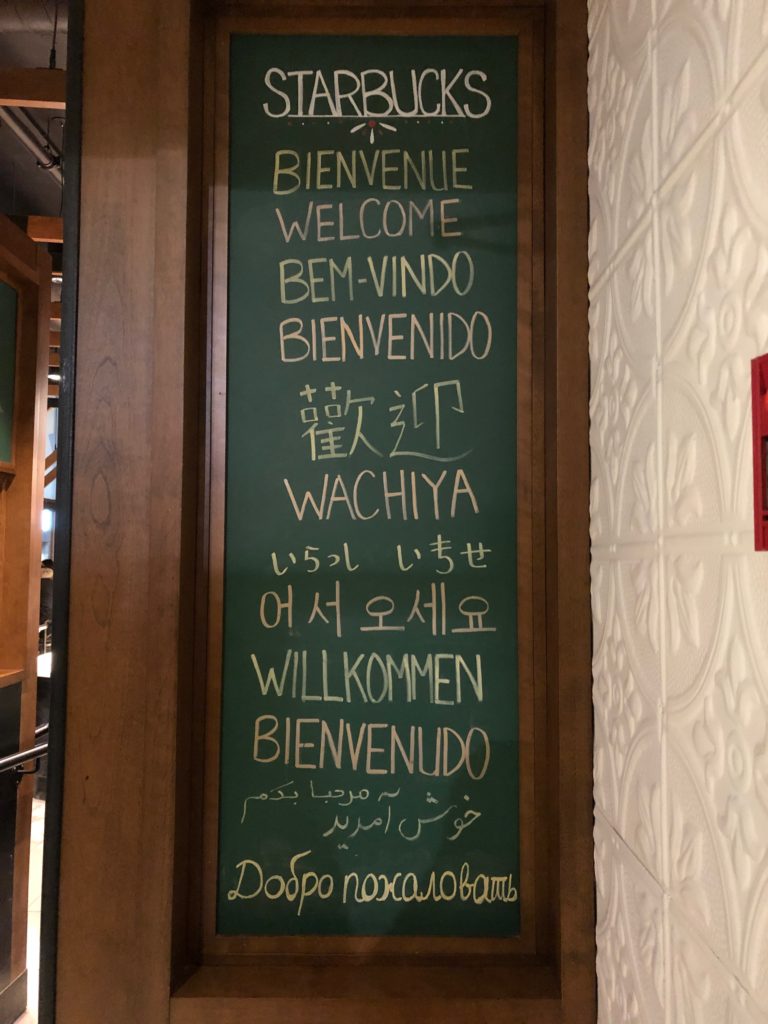 STARBUCKS
BIENVENUE
WELCOME
BEM-VINDO
BIENVENIDO
歡迎
WACHIYA
いらっし いませ
어서 오세요
WILLKOMMEN
BIENVENUDO
مرحبا بكم
خوش آمدید
Добро пожаловать